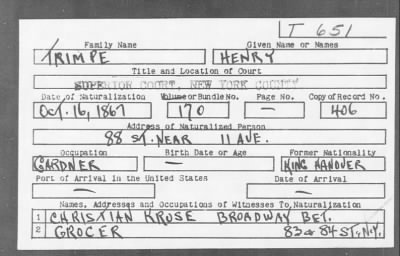 T 651
Family Name Given Name or Names
TRIMPE HENRY
Title and Location of Court
SUPERIOR COURT, NEW YORK COUNTY
Date of Naturalization Volume or Bundle No. Page No. Copy of Record No.
Oct. 16, 1867 170 — 406
Address of Naturalized Person
88 ST. NEAR 11 AVE.
Occupation Birth Date or Age Former Nationality
GARDNER — KING HANOVER
Port of Arrival in the United States Date of Arrival
— —
Names, Addresses and Occupations of Witnesses To Naturalization
1 CHRISTIAN KRUSE BROADWAY BET.
2 GROCER 83 & 84 ST. N.Y.